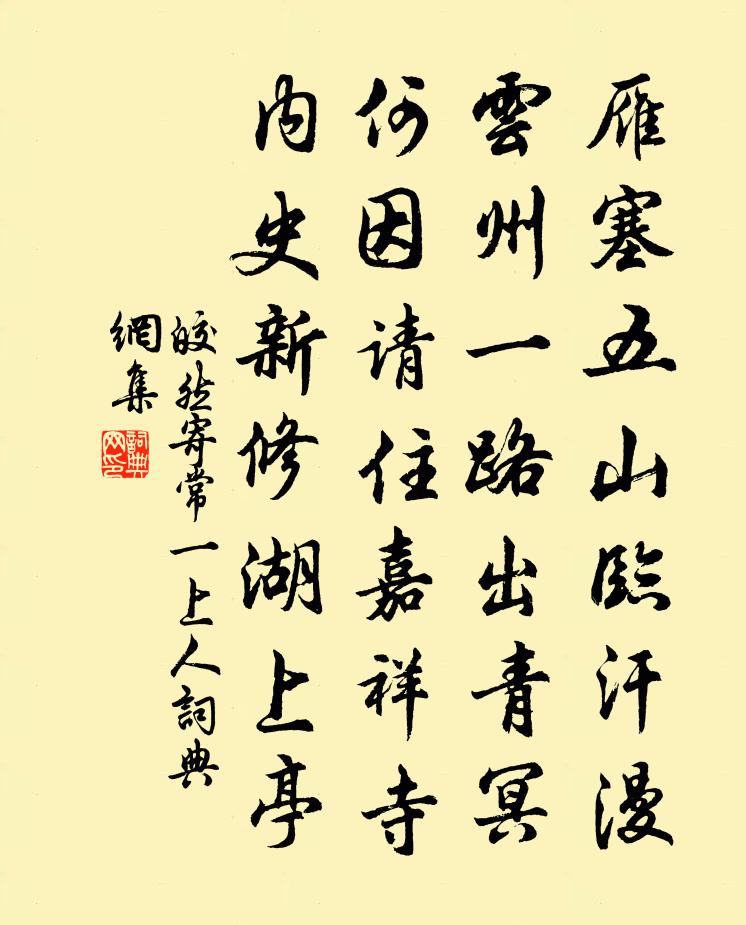 雁塞五山臨汗漫
雲州一路出青冥
何因请住嘉祥寺
内史新修湖上亭
皎然寄常一上人詞典
網集
詞典
网印